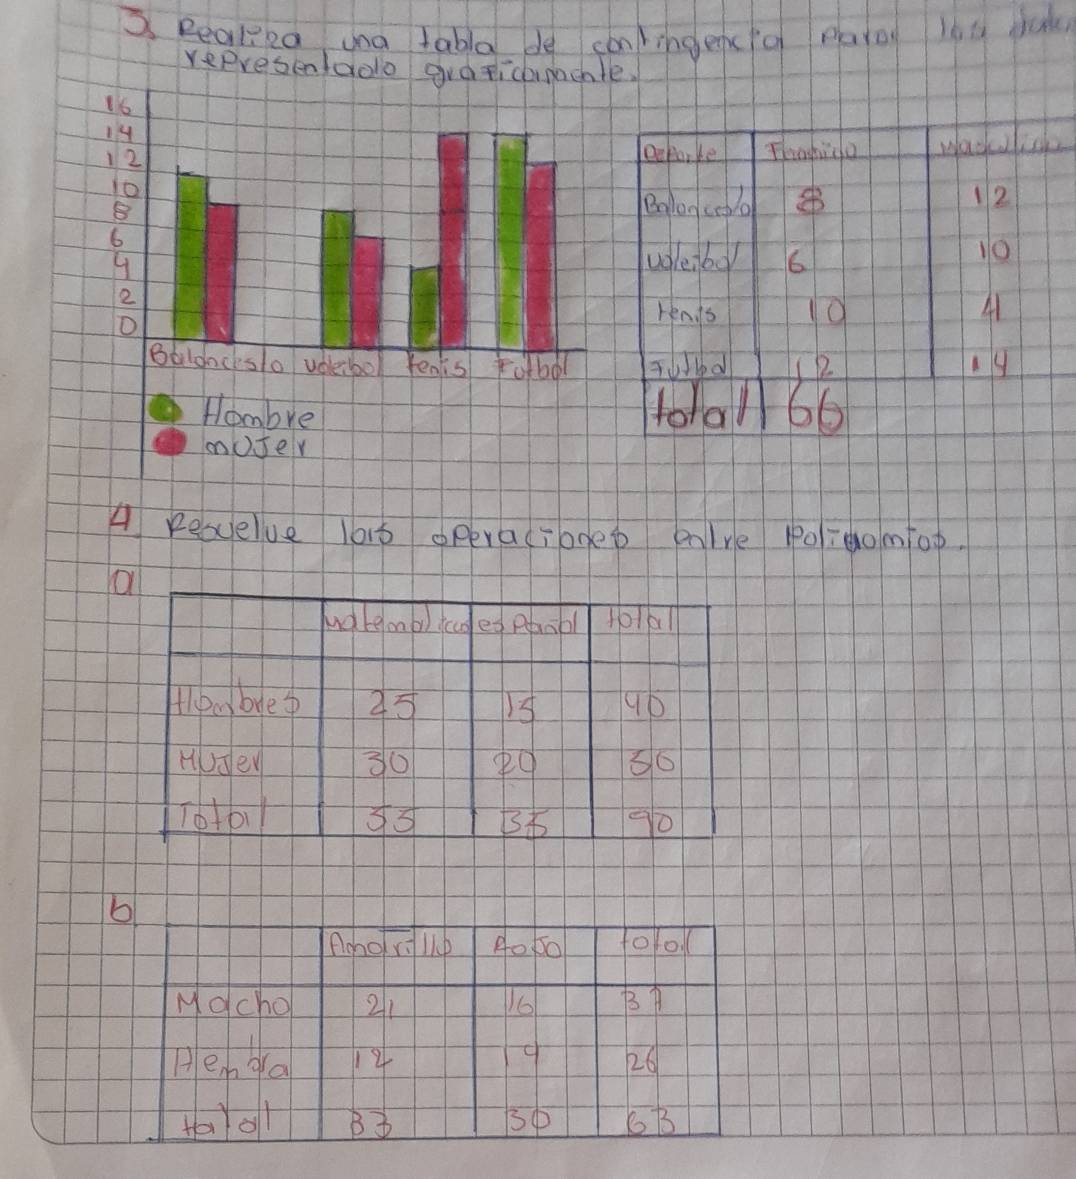 3. Realiza una tabla de contingencia para los
representado graficamente.
16
14
12
10
8
6
4
2
0
Baloncesto voleibol tenis Futbol
Hombre
mujer
Deporte Femenino Masculino
Baloncesto 8 12
voleibol 6 10
tenis 10 4
Futbol 12 14
total 66
4 Resuelve las operaciones entre Polinomios.
a
Matematicas español total
Hombres 25 15 40
Mujer 30 20 50
Total 55 35 90
b
Amarillo Rojo total
Macho 21 16 37
Hembra 12 14 26
total 33 30 63